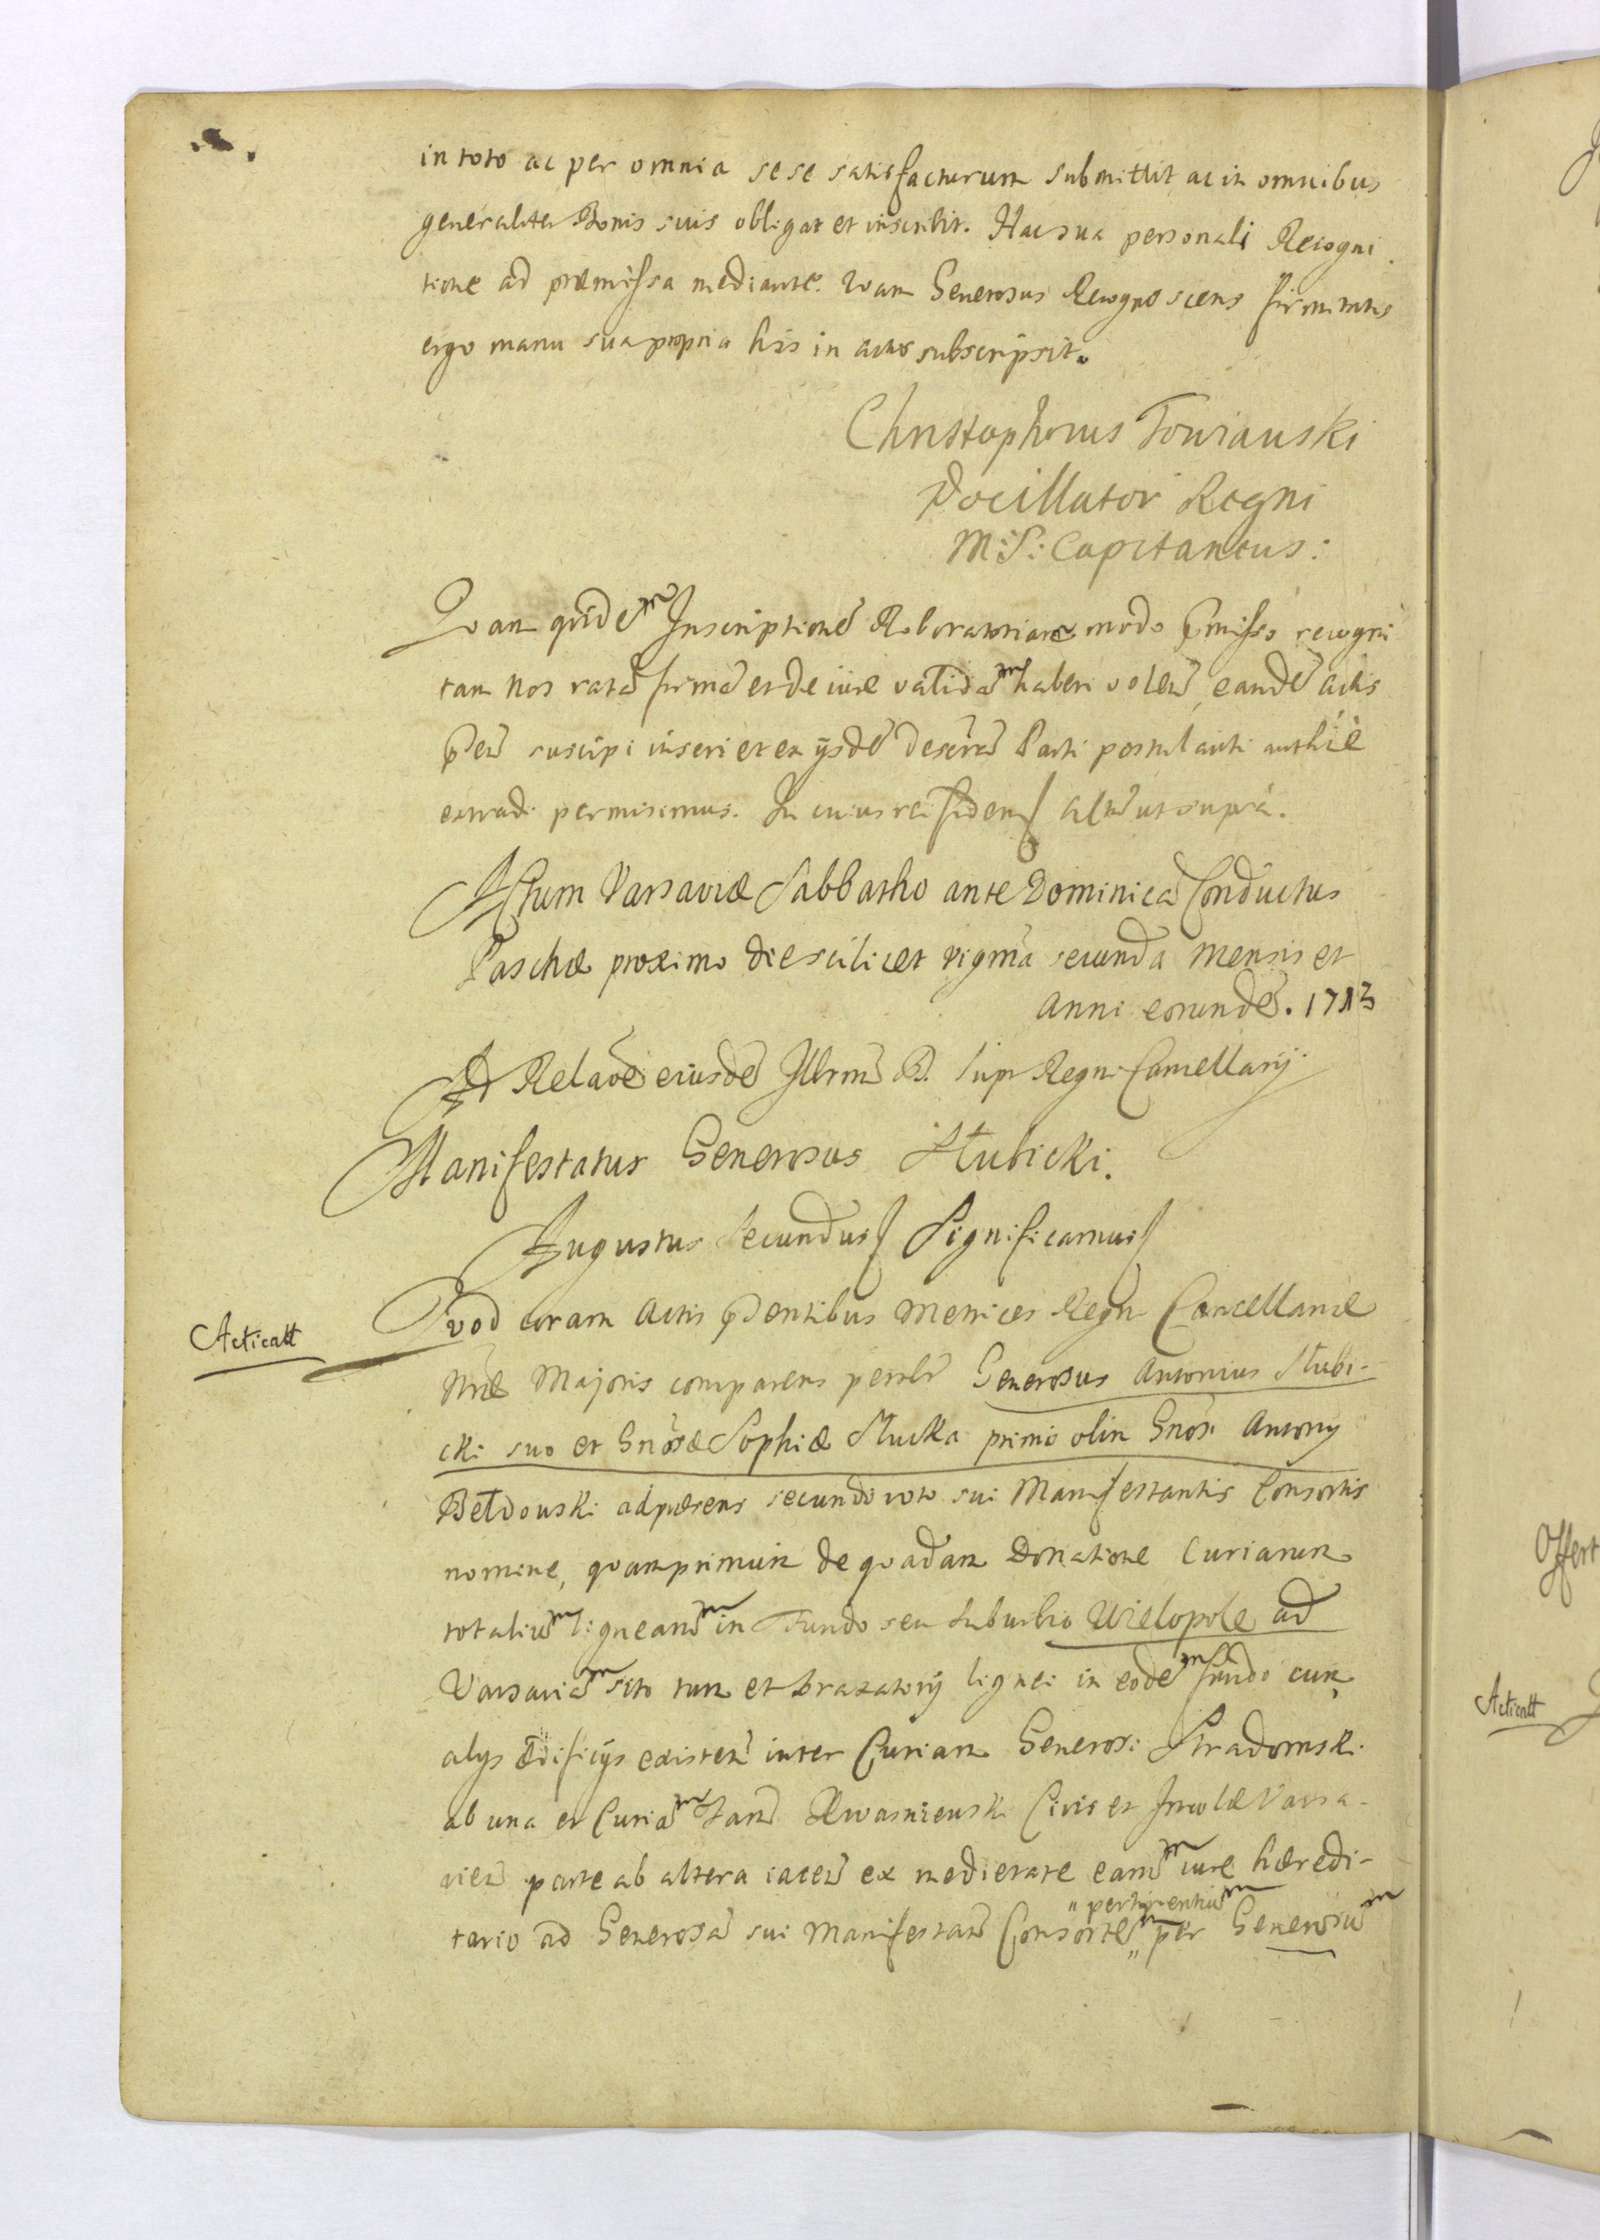 in toto ac per omnia sese satisfacturum submittit ac in omnibus
generaliter Bonis suis obligat et inscribit. Hac sua personali Recogni
tione ad præmissa mediante. quam Generosus Recognoscens firmitatis
ergo manu sua propria his in actis subscripsit.
Christophorus Towianski
Pocillator Regni
M: S: Capitaneus:
Quam quidē Inscriptionē Roboratoriam modo p̄misso recogni
tam nos ratā firmā et de iure validā haberi volen̄, eandē actis
p̄en̄ suscipi inseri et ex ysdē Parti postulanti
extradi permisimus. In cuius rei fidem act̄ ut supra.
Actum Varsaviæ Sabbatho ante Dominicā Conductus
Paschæ proximo die scilicet secunda Mensis et
Anni eorundē. 1713
Ad Relaōē eiusdē Illrm̄ Regni Cancellarij
Manifestatur Generosus Słubicki.
Augustus Secundus Significamus
Acticatt
Quod coram Actis p̄dentibus Metrices Regni Cancellariæ
Nræ Majoris comparens Generosus Antonius Słubi-
cki suo et Gnōsæ Sophiæ Słucka primo olim Gnōsi Antony
Bełdowski adpræsens secundo voto sui Manifestantis Consortis
nomine, quamprimum de quadam Donatione Curiarum
totaliū lignearū in Fundo seu Suburbio Wielopole ad
Varsaviā sito tum et braxatorij lignei in eodē fundo cum
alys ædificijs existen̄ inter Curiam Generosi Stradomski
ab una et Curiā Kwasniewski Civis et Incolæ Varsa-
vien̄ parte ab altera iacen̄ ex medietate earū iure hæredi-
" pertinentiū
tario ad Generosā sui Manifestan̄ Consortē " per Generosū
Offert
Acticatt